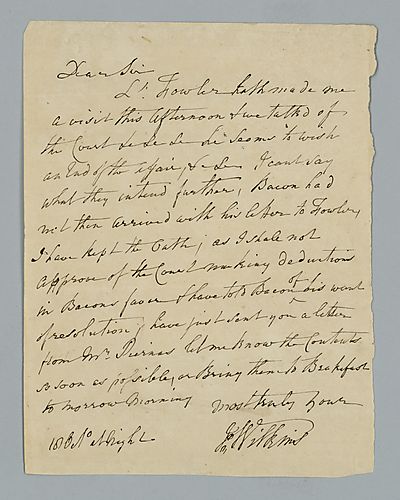 Dear Sir
Lt. Fowler hath made me
a visit this Afternoon & we talkd of
the Court &c &c &c he Seems to wish
an End of the affair, &c &c I cant say
what they intend further, Bacon had
not then arrived with his letter to Fowler,
I have kept the Oath, as I shall not
approve of the Court making deductions
in Bacons favor I have told Bacon of his want
of resolution, I have just sent you a letter
from Mr. let me know the Contents
so soon as possible, or Bring them to Breakfast
to morrow Morning
most truly Yours
Wilkins
18 Oto. at Night